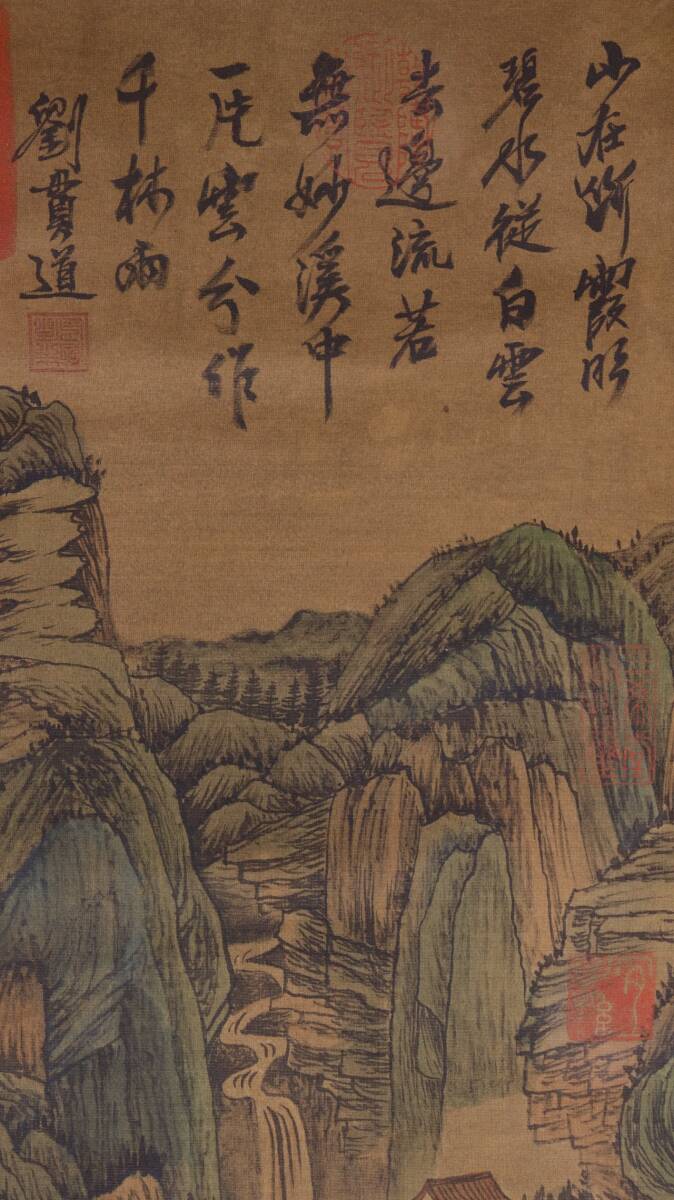 山在斷霞明
碧水從白雲
去邊流若
無妙溪中
一片雲兮作
千林雨
劉貫道